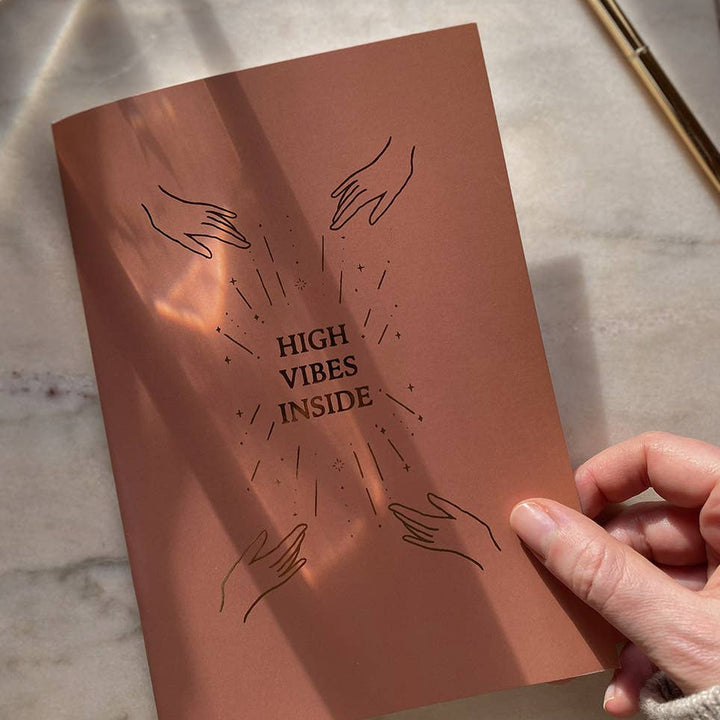 HIGH
VIBES
INSIDE